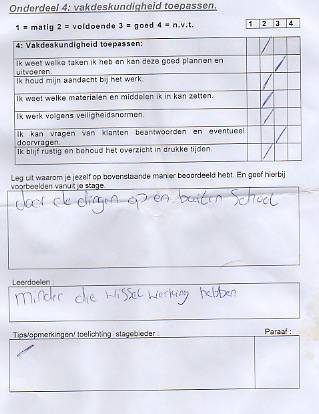 Onderdeel 4: vakdeskundigheid toepassen.
1 = matig 2 = voldoende 3 = goed 4 = n.v.t. 1 2 3 4
4: Vakdeskundigheid toepassen:
Ik weet welke taken ik heb en kan deze goed plannen en
uitvoeren.
Ik houd mijn aandacht bij het werk.
Ik weet welke materialen en middelen ik in kan zetten.
Ik werk volgens veiligheidsnormen.
Ik kan vragen van klanten beantwoorden en eventueel
doorvragen.
Ik blijf rustig en behoud het overzicht in drukte tijden.
Leg uit waarom je jezelf op bovenstaande manier beoordeeld hebt. En geef hierbij
voorbeelden vanuit je stage.
door de dingen op en buiten School
Leerdoelen :
minder die wissel werking hebben
Tips/opmerkingen/ toelichting stagebieder : Paraaf :